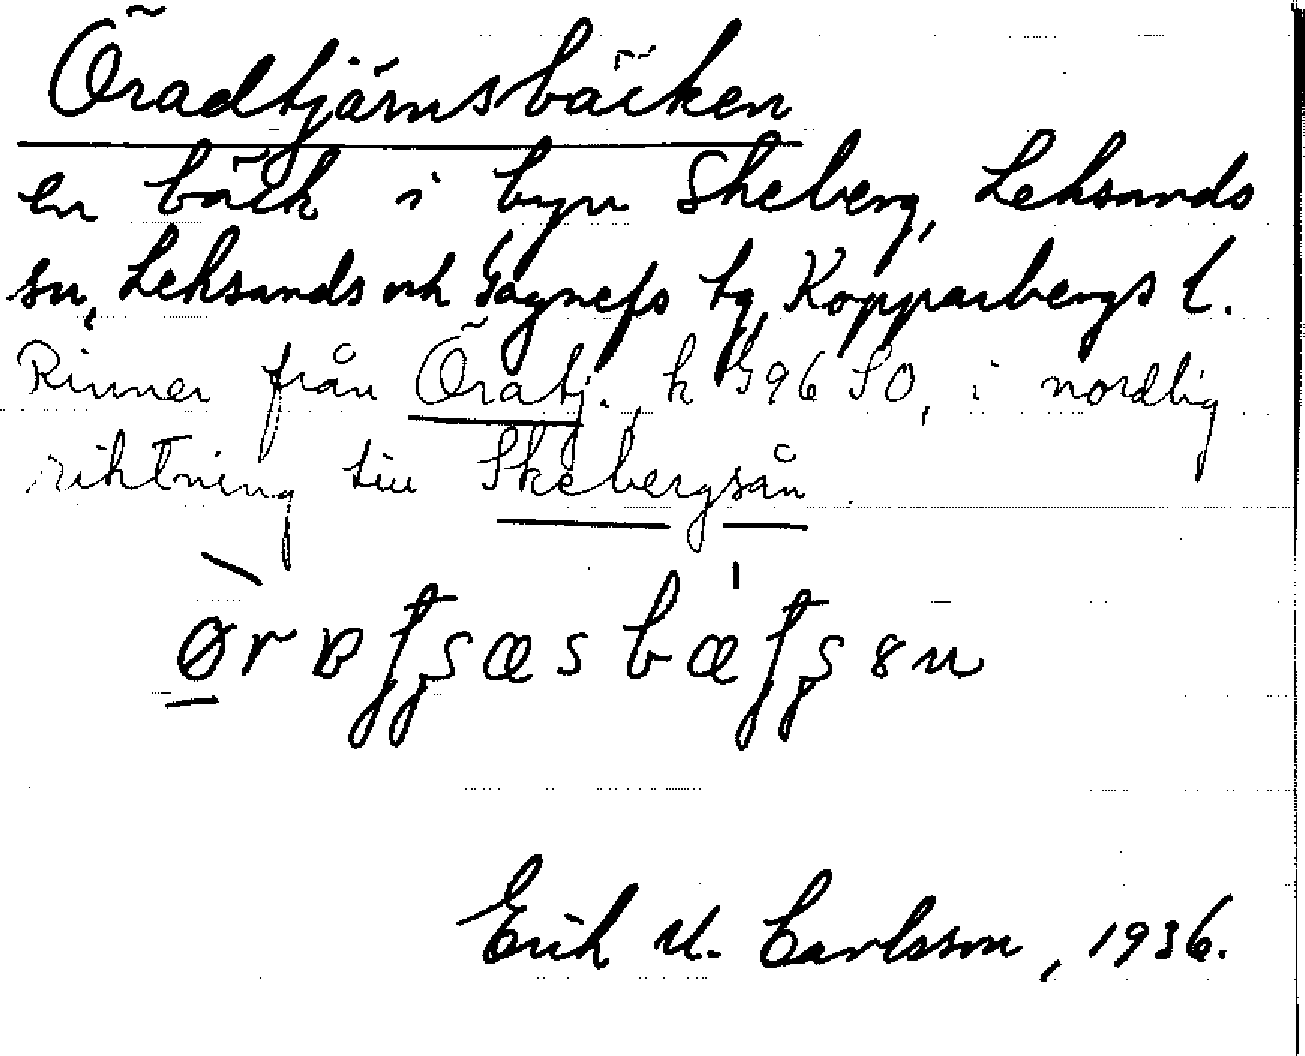 Öradtjärnsbäcken
en bäck i byn Skeberg, Leksands
sn, Leksands och Gagnefs tg, Kopparbergs l.
Rinner från Öratj., k G96 SO, i nordlig
riktning till Skebergsån
Erik U. Carlsson, 1936.